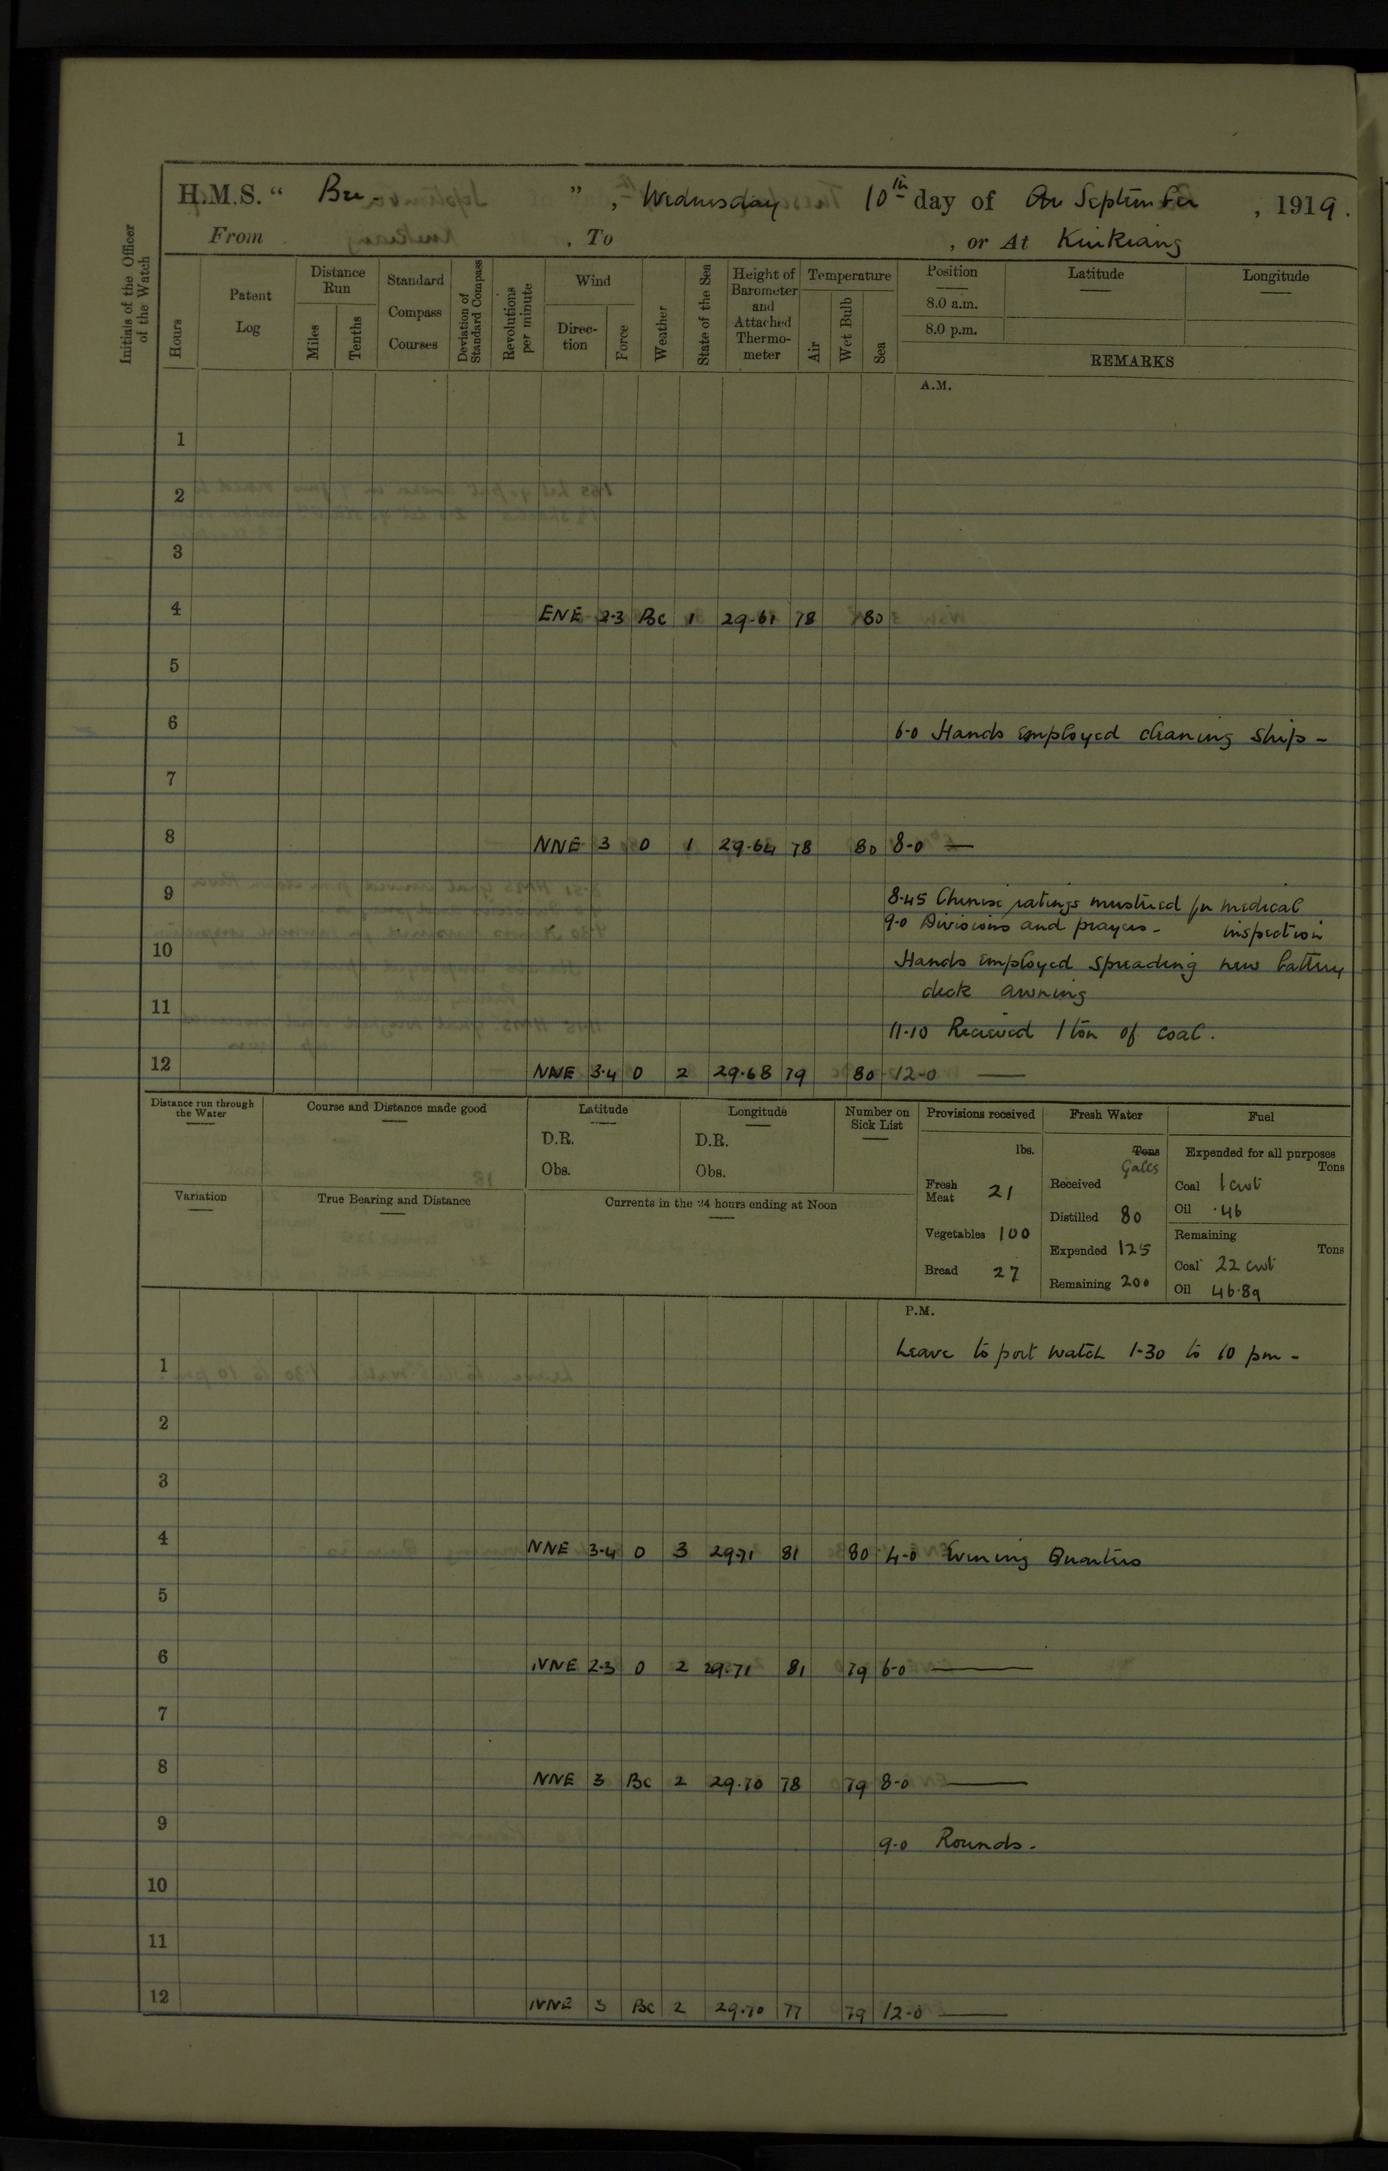 H.M.S. " Bee. ", Wednesday 10th day of September, 1919.
From , To , or At Kiukiang
Initials of the Officer of the Watch
Hours
Patent Log
Distance Run
Miles
Tenths
Standard Compass Courses
Deviation of Standard Compass
Revolutions per minute
Wind
Direction
Force
Weather
State of the Sea
Height of Barometer and Attached Thermometer
Temperature
Air
Wet Bulb
Sea
Position
8.0 a.m.
8.0 p.m.
Latitude
Longitude
REMARKS
A.M.
1
2
3
4 ENE 2.3 Bc 1 29.61 78 80
5
6 6-0 Hands employed cleaning ship -
7
8 NNE 3 O 1 29.64 78 80 8-0 —
9 8.45 Chinese ratings mustered for medical
9-0 Divisions and prayers - inspection
10 Hands employed spreading new battery
deck awning
11 11-10 Received 1 ton of coal.
12 NNE 3.4 O 2 29.68 79 80 12-0 —
Distance run through the Water
Course and Distance made good
Latitude
D.R.
Obs.
Longitude
D.R.
Obs.
Number on Sick List
Provisions received
lbs.
Fresh Meat 21
Vegetables 100
Bread 27
Fresh Water
Tons
Galls
Received
Distilled 80
Expended 125
Remaining 200
Fuel
Expended for all purposes
Tons
Coal 1 cwt
Oil .46
Remaining
Tons
Coal 22 cwt
Oil 46.89
Variation
True Bearing and Distance
Currents in the 24 hours ending at Noon
P.M.
1 Leave to port watch 1-30 to 10 pm -
2
3
4 NNE 3.4 O 3 29.71 81 80 4-0 Evening Quarters
5
6 NNE 2.3 O 2 29.71 81 79 6-0 —
7
8 NNE 3 Bc 2 29.70 78 79 8-0 —
9 9-0 Rounds.
10
11
12 NNE 3 Bc 2 29.70 77 79 12-0 —